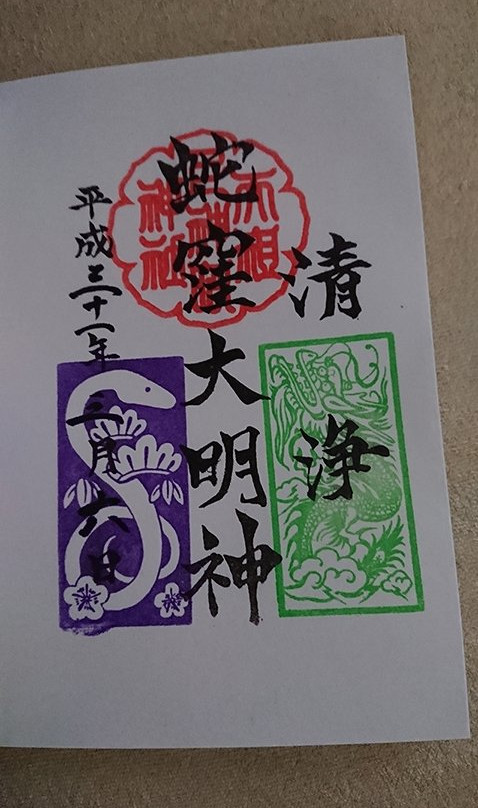 清浄
蛇窪大明神
平成三十一年三月六日